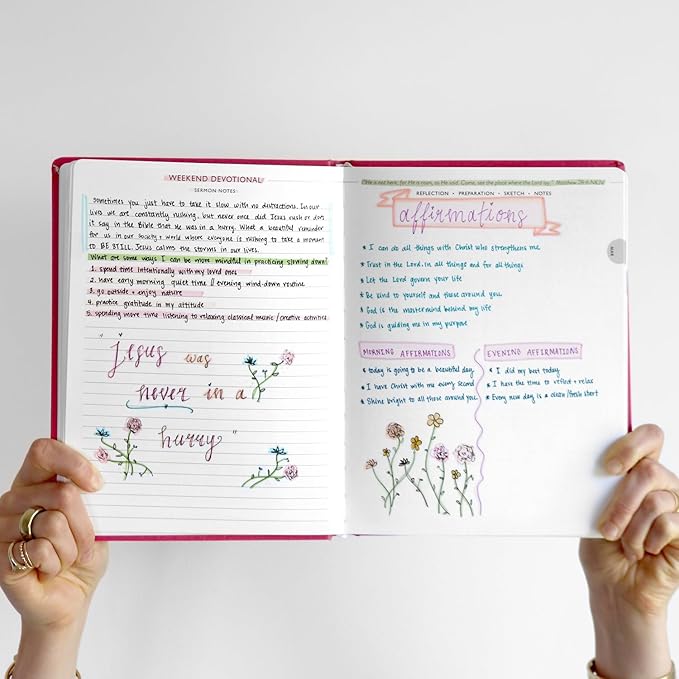 WEEKEND DEVOTIONAL
SERMON NOTES
Sometimes you just have to take it slow with no distractions. In our
lives we are constantly rushing, but never once did Jesus rush or does
it say in the Bible that He was in a hurry. What a beautiful reminder
for us in our society + world where everyone is needing to take a moment
to BE STILL. Jesus calms the storms in our lives.
What are some ways I can be more mindful in practicing slowing down?
1. spend time intentionally with my loved ones
2. have early morning quiet time & evening wind-down routine
3. go outside + enjoy nature
4. practice gratitude in my attitude
5. spending more time listening to relaxing classical music / creative activities
"Jesus was
never in a
hurry"
"He is not here; for He is risen, as He said. Come, see the place where the Lord lay." Matthew 28:6 NKJV
REFLECTION • PREPARATION • SKETCH • NOTES
affirmations
* I can do all things with Christ who strengthens me
* Trust in the Lord, in all things and for all things
* Let the Lord govern your life
* Be kind to yourself and those around you
* God is the mastermind behind my life
* God is guiding me in my purpose
MORNING AFFIRMATIONS
* today is going to be a beautiful day
* I have Christ with me every second
* Shine bright to all those around you
EVENING AFFIRMATIONS
* I did my best today
* I have the time to reflect + relax
* Every new day is a clean/fresh start
MAR